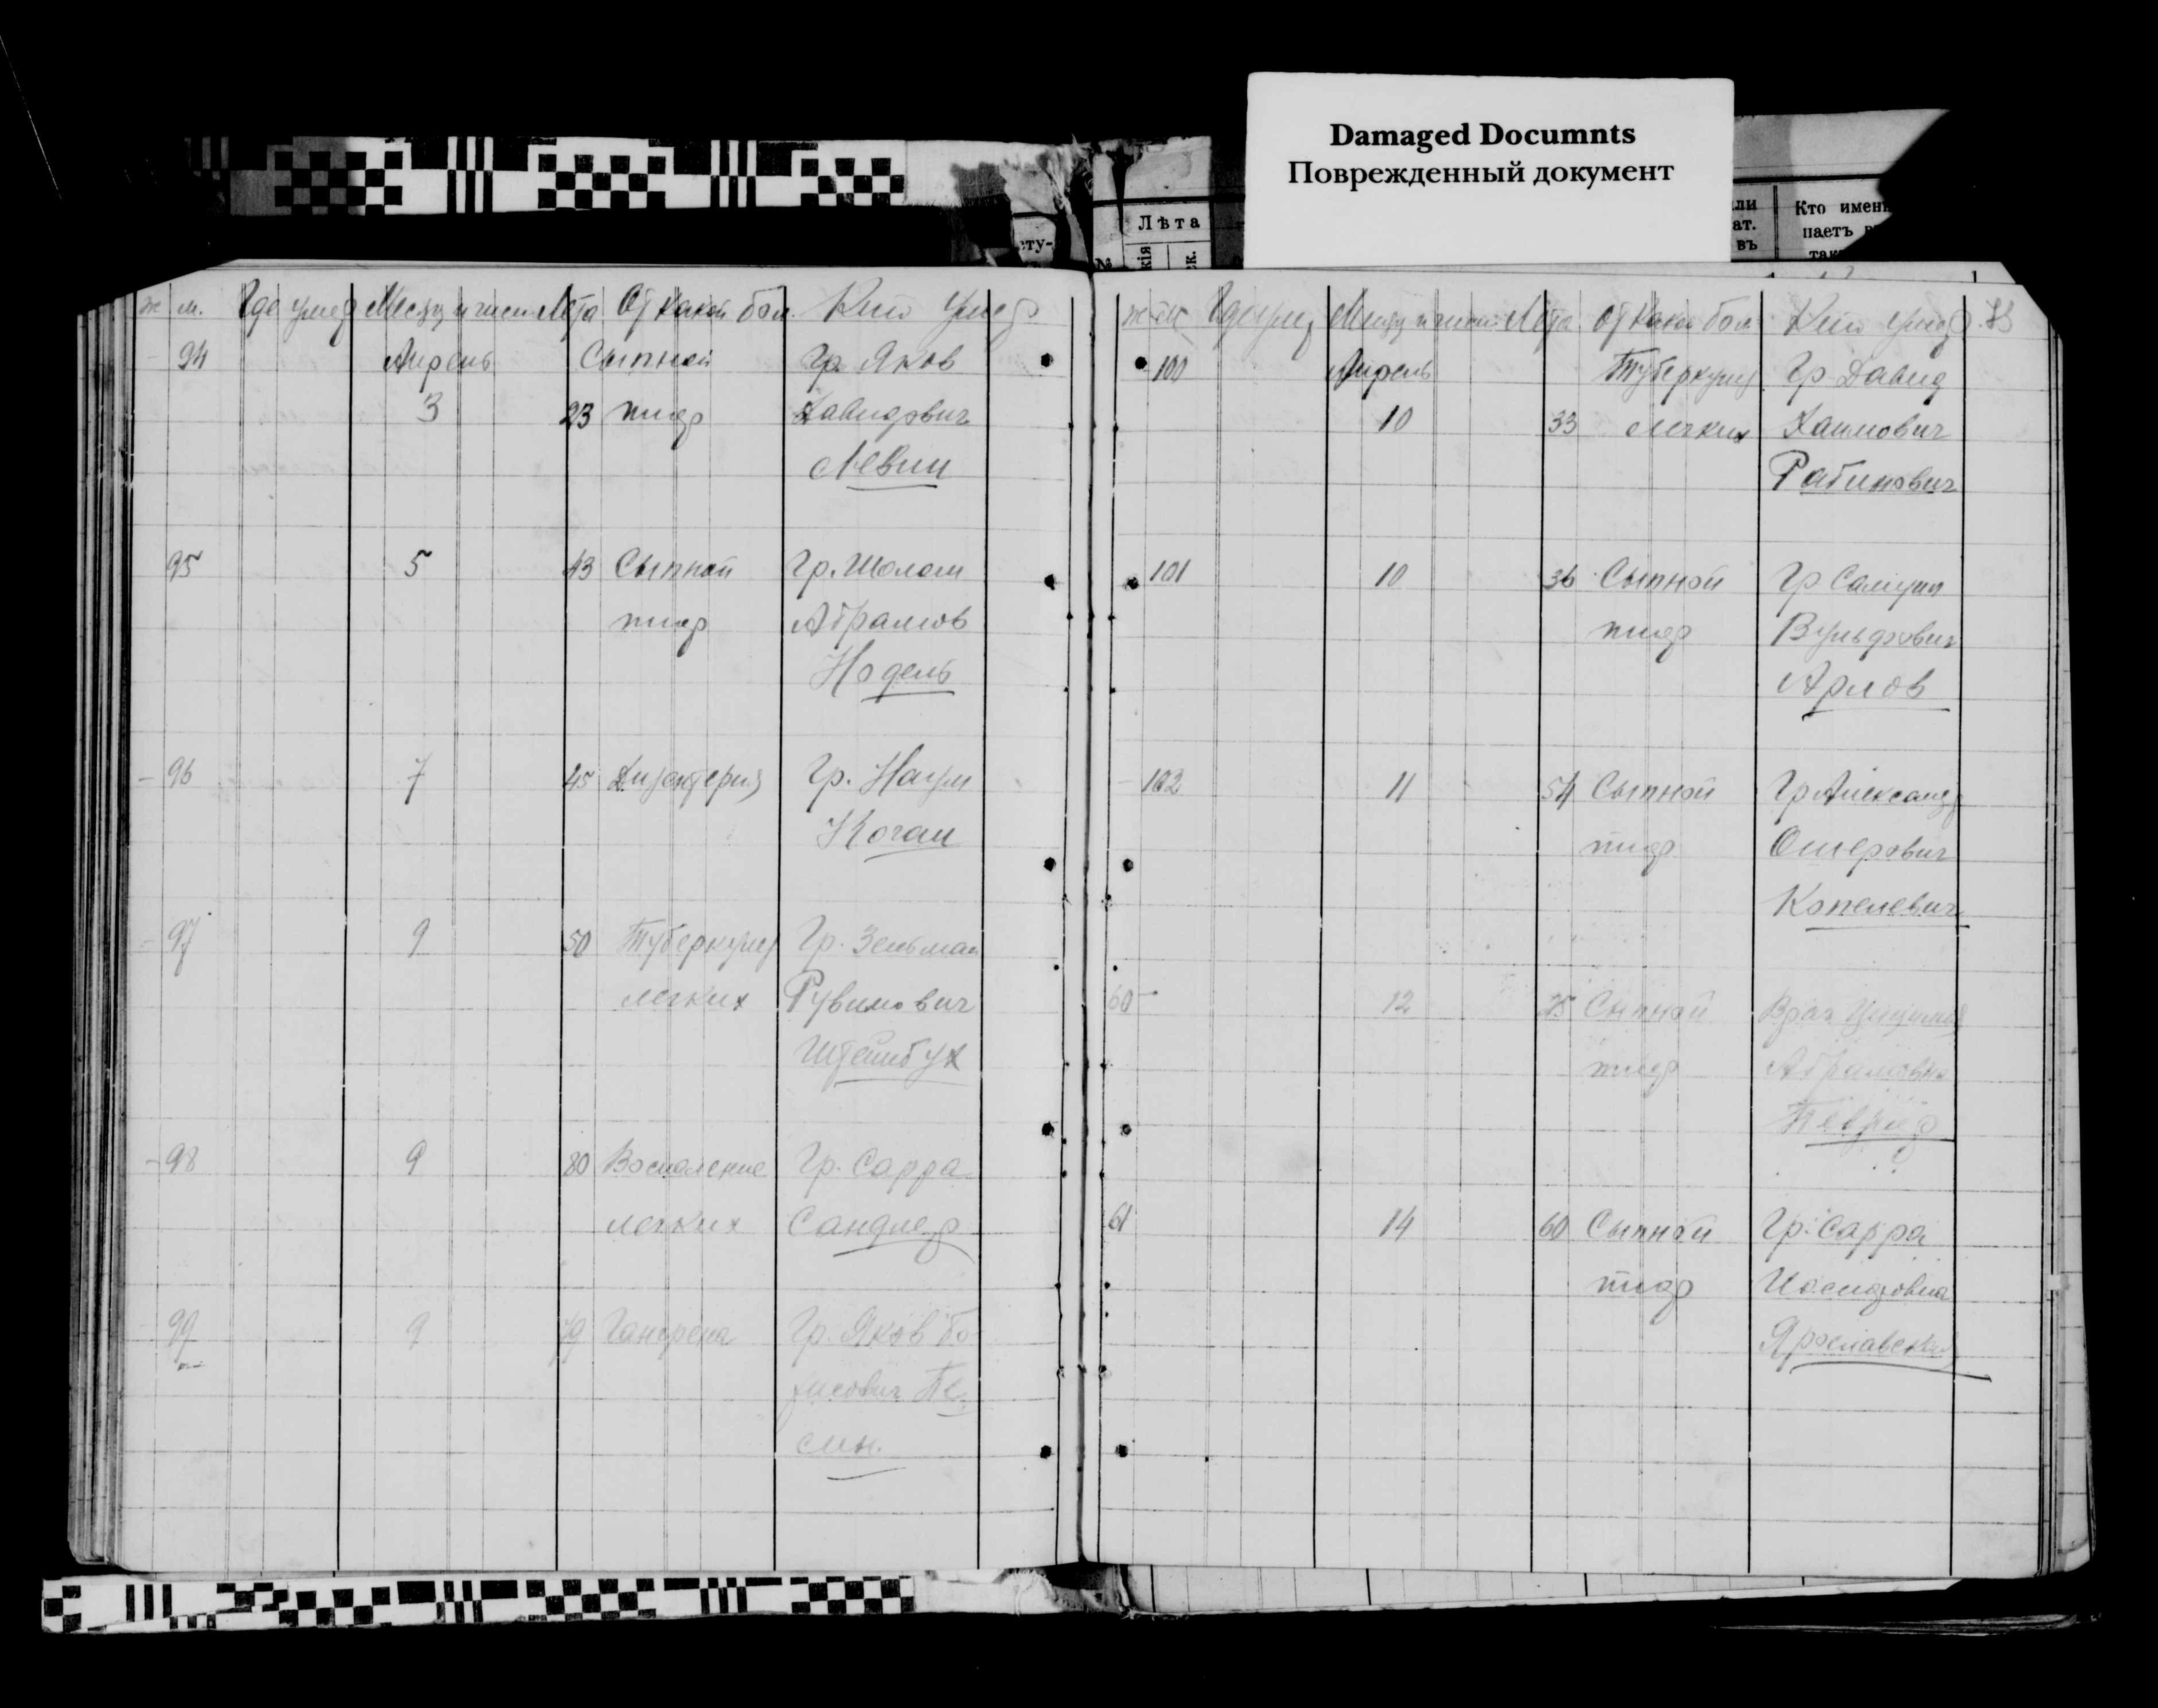 Damaged Documnts
Поврежденный документ
Лѣта
Кто имен
ж м. Где умер Месяц и число Лета От какой бол. Кто умер
94 Апрель Сыпной Гр. Яков
3 23 тиф Давидович
Левин
95 5 43 Сыпной Гр. Шолом
тиф Абрамов
Нодель
96 7 45 Дизентерия Гр. Наум
Коган
97 9 50 Туберкулез Гр. Зельман
легких Рувимович
Штейнбух
98 9 80 Воспаление Гр. Сарра
легких Сандлер
99 9 79 Гангрена Гр. Яков Бо-
рисович Пе-
син.
Где умер Месяц и число Лета От какой бол. Кто умер 73
100 Апрель Туберкулез Гр. Давид
10 33 легких Хаимович
Рабинович
101 10 36 Сыпной Гр Самуил
тиф Вульфович
Арлов
102 11 54 Сыпной Гр Александр
тиф Ошерович
Копелевич
60 12 25 Сыпной Врач
тиф Абрамовна
Певзнер
61 14 60 Сыпной Гр. Сарра
тиф Иосифовна
Ярославская